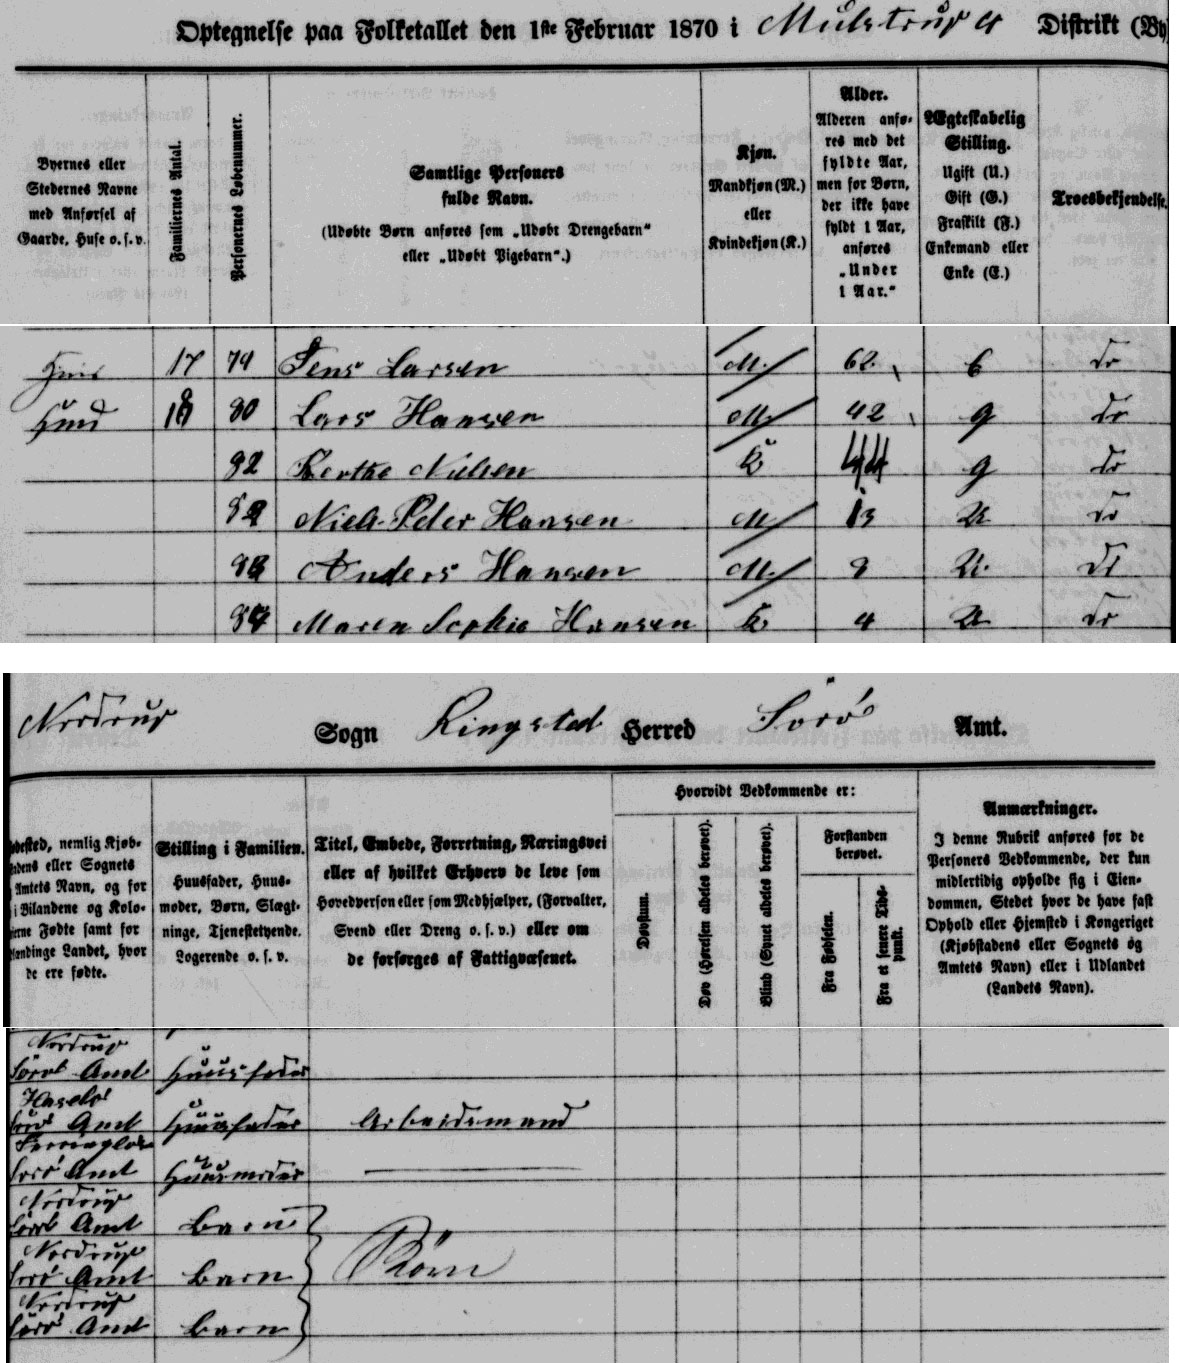 Optegnelse paa Folketallet den 1ste Februar 1870 i Mulstrup Distrikt (By)
Byernes eller
Stedernes Navne
med Anførsel af
Gaarde, Huse o. s. v.
Familiernes Antal.
Personernes Løbenummer.
Samtlige Personers
fulde Navn.
(Udøbte Børn anføres som „Udøbt Drengebarn"
eller „Udøbt Pigebarn".)
Kjøn.
Mandkjøn (M.)
eller
Kvindekjøn (K.)
Alder.
Alderen anfø-
res med det
fyldte Aar,
men for Børn,
der ikke have
fyldt 1 Aar,
anføres
„Under
1 Aar."
Ægteskabelig
Stilling.
Ugift (U.)
Gift (G.)
Fraskilt (F.)
Enkemand eller
Enke (E.)
Troesbekjendelse.
17 79 Jens Larsen M. 62 E do
Huus 18 80 Lars Hansen M. 42 g do
Berthe Nielsen K 44 g do
Niels Peter Hansen M 13 U do
Anders Hansen M. 8 U. do
84 Maren Sophie Hansen K 4 U do
Nordrup Sogn Ringsted Herred Sorø Amt.
Fødested, nemlig Kjøb-
stedens eller Sognets
og Amtets Navn, og for
de i Bilandene og Kolo-
nierne Fødte samt for
Udlændinge Landet, hvor
de ere fødte.
Stilling i Familien.
Huusfader, Huus-
moder, Børn, Slægt-
ninge, Tjenestetyende.
Logerende o. s. v.
Titel, Embede, Forretning, Næringsvei
eller af hvilket Erhverv de leve som
Hovedperson eller som Medhjælper, (Forvalter,
Svend eller Dreng o. s. v.) eller om
de forsørges af Fattigvæsenet.
Hvorvidt Vedkommende er:
Døvstum.
Døv (Hørelsen aldeles berøvet).
Blind (Synet aldeles berøvet).
Forstanden
berøvet.
Fra Fødselen.
Fra et senere Tids-
punkt.
Anmærkninger.
I denne Rubrik anføres for de
Personers Vedkommende, der kun
midlertidig opholde sig i Eien-
dommen, Stedet hvor de have fast
Ophold eller Hjemsted i Kongeriget
(Kjøbstadens eller Sognets og
Amtets Navn) eller i Udlandet
(Landets Navn).
Nordrup
Sorø Amt Huusfader
Haslev
Sorø Amt Huusfader Arbeidsmand
Sorø Amt Huusmoder
Nordrup
Sorø Amt Barn
Nordrup
Sorø Amt Barn Børn
Nordrup
Sorø Amt Barn